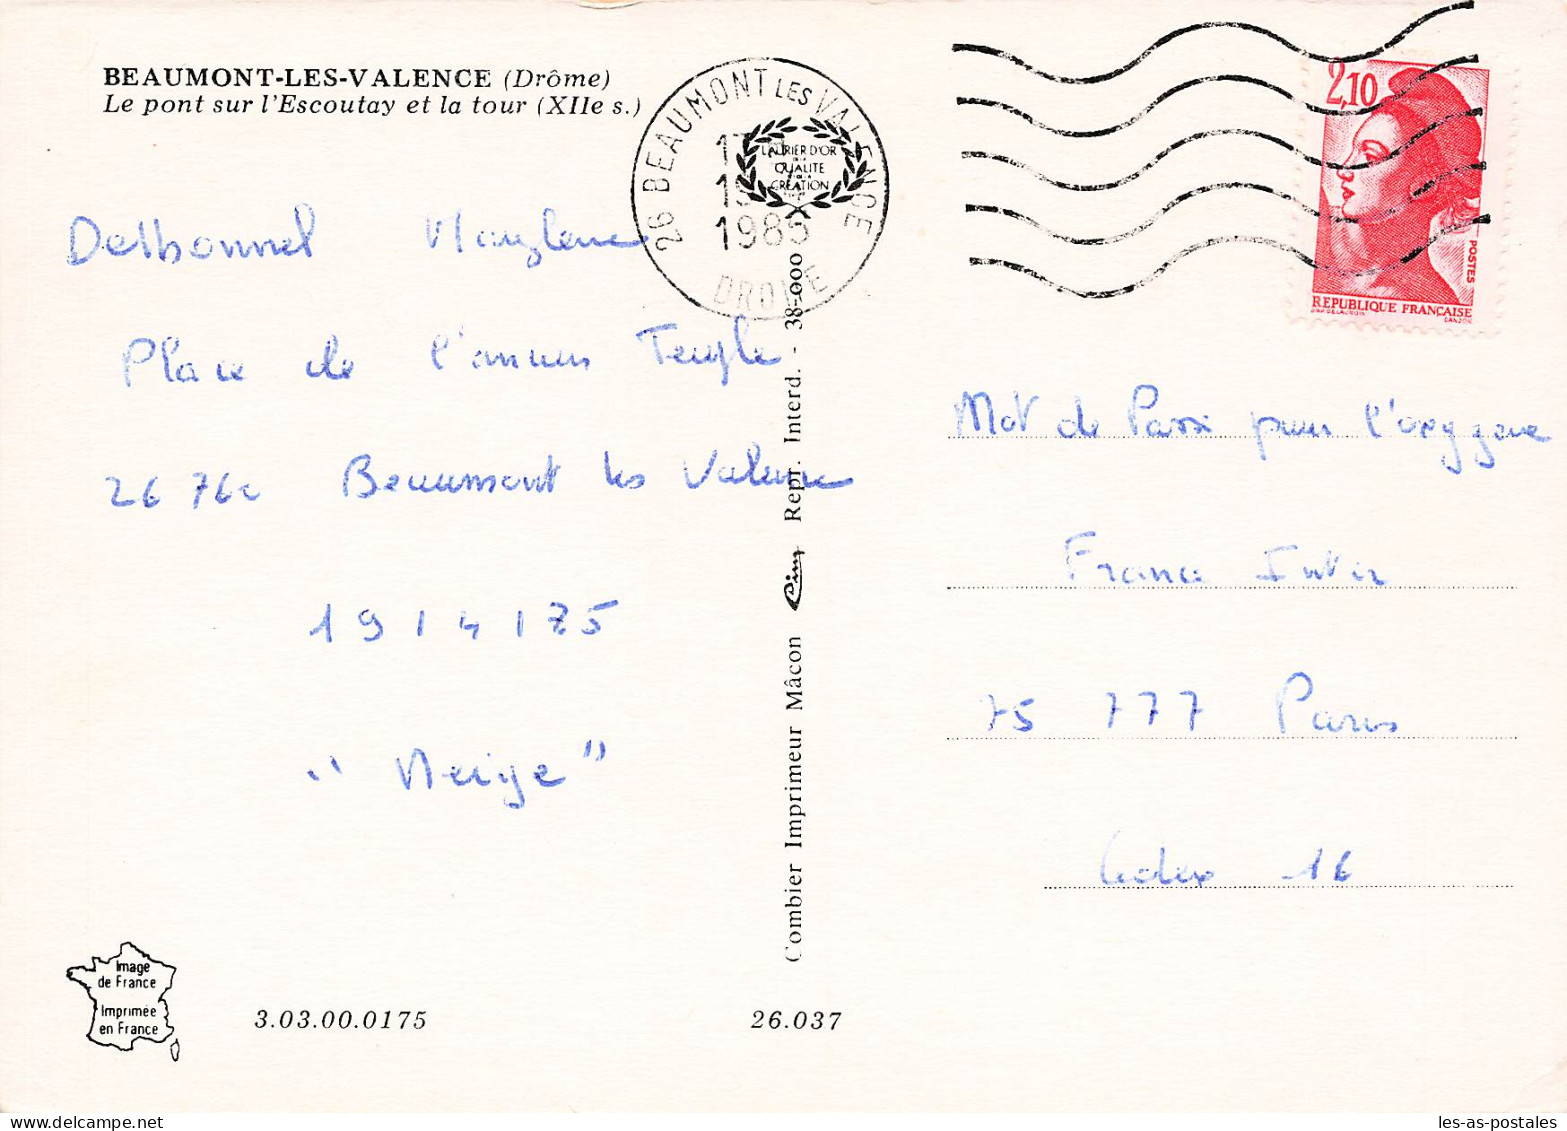 BEAUMONT-LES-VALENCE (Drôme)
Le pont sur l'Escoutay et la tour (XIIe s.)
26 BEAUMONT LES VALENCE
1985
DROME
LAURIER D'OR
DE LA
QUALITE
CREATION
2,10
POSTES
REPUBLIQUE FRANÇAISE
GANDON
Delbonnel Marylene
Place de l'ancien Temple
26 760 Beaumont les Valence
19 / 4 / 85
"Neige"
Mot de Passe pour l'oxygene
France Inter
75 777 Paris
Cedex 16
Combier Imprimeur Mâcon Cim Repr. Interd. - 38-000
Image
de France
Imprimée
en France
3.03.00.0175
26.037
delcampe.net
les-as-postales